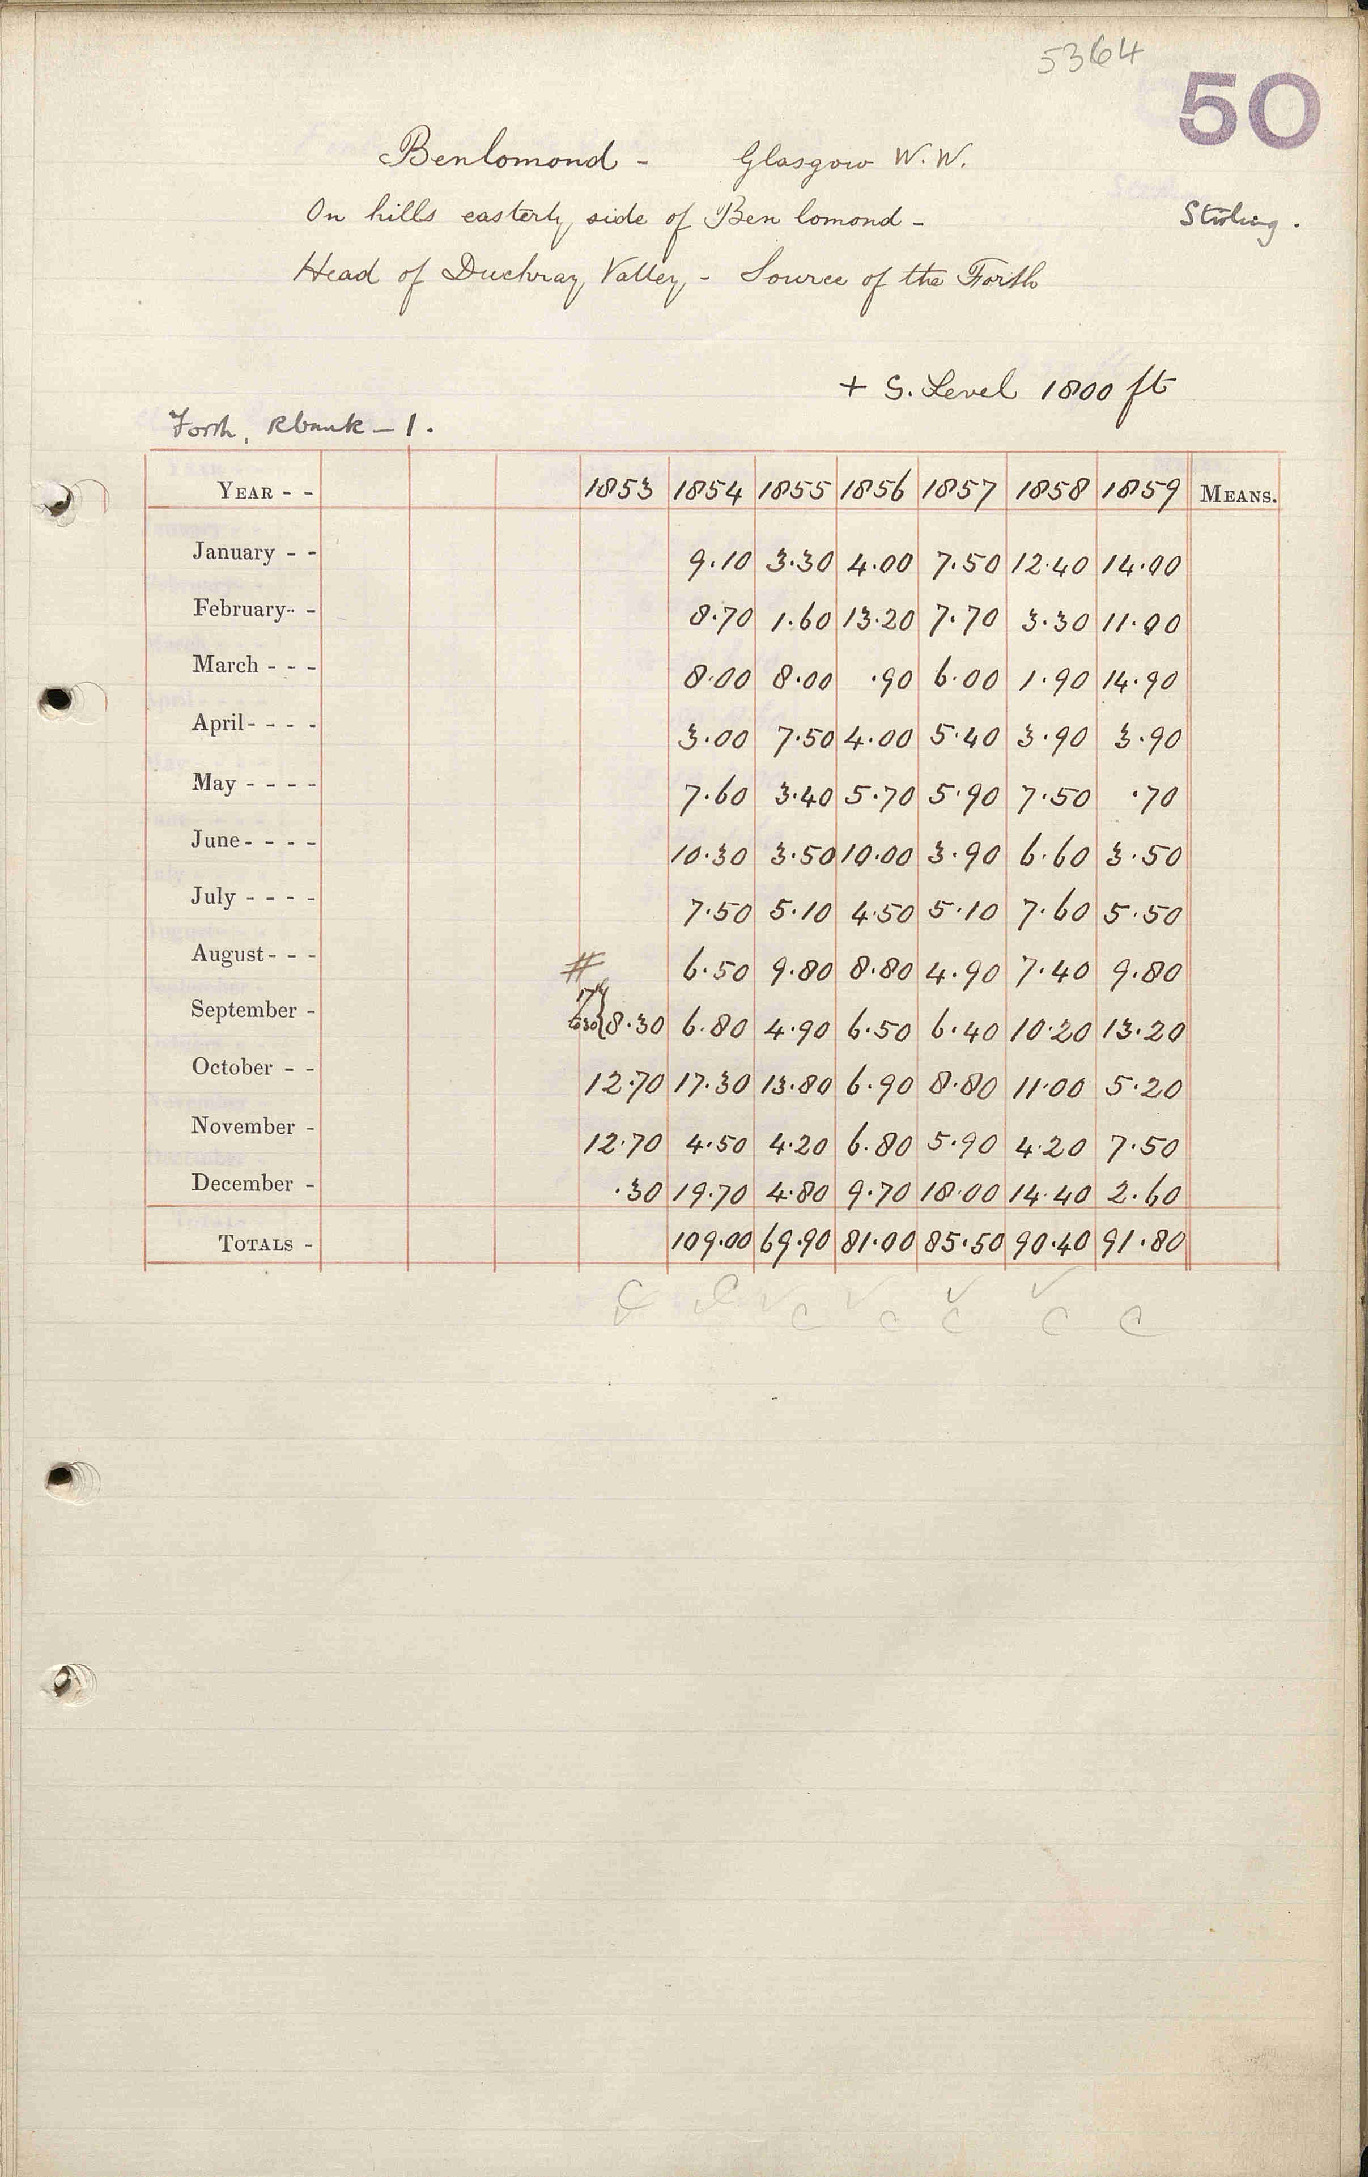 5364
50
Benlomond - Glasgow W.W.
On hills easterly side of Ben lomond -
Stirling.
Head of Duchray Valley - Source of the Forth
+ S. Level 1800 ft
Forth, Rbank - 1.
YEAR - - 1853 1854 1855 1856 1857 1858 1859 MEANS.
January - - 9.10 3.30 4.00 7.50 12.40 14.00
February - - 8.70 1.60 13.20 7.70 3.30 11.00
March - - - 8.00 8.00 .90 6.00 1.90 14.90
April - - - - 3.00 7.50 4.00 5.40 3.90 3.90
May - - - - 7.60 3.40 5.70 5.90 7.50 .70
June - - - - 10.30 3.50 10.00 3.90 6.60 3.50
July - - - - 7.50 5.10 4.50 5.10 7.60 5.50
August - - - # 6.50 9.80 8.80 4.90 7.40 9.80
September - 17th to 30 } 8.30 6.80 4.90 6.50 6.40 10.20 13.20
October - - 12.70 17.30 13.80 6.90 8.80 11.00 5.20
November - 12.70 4.50 4.20 6.80 5.90 4.20 7.50
December - .30 19.70 4.80 9.70 18.00 14.40 2.60
TOTALS - 109.00 69.90 81.00 85.50 90.40 91.80
C C C C C C C